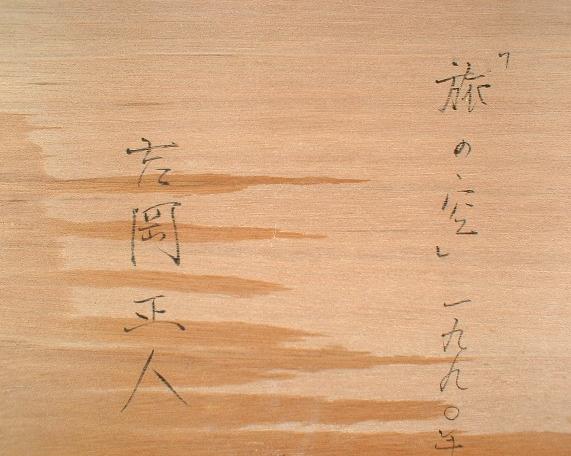 「旅の空」 一九九〇年
吉岡正人